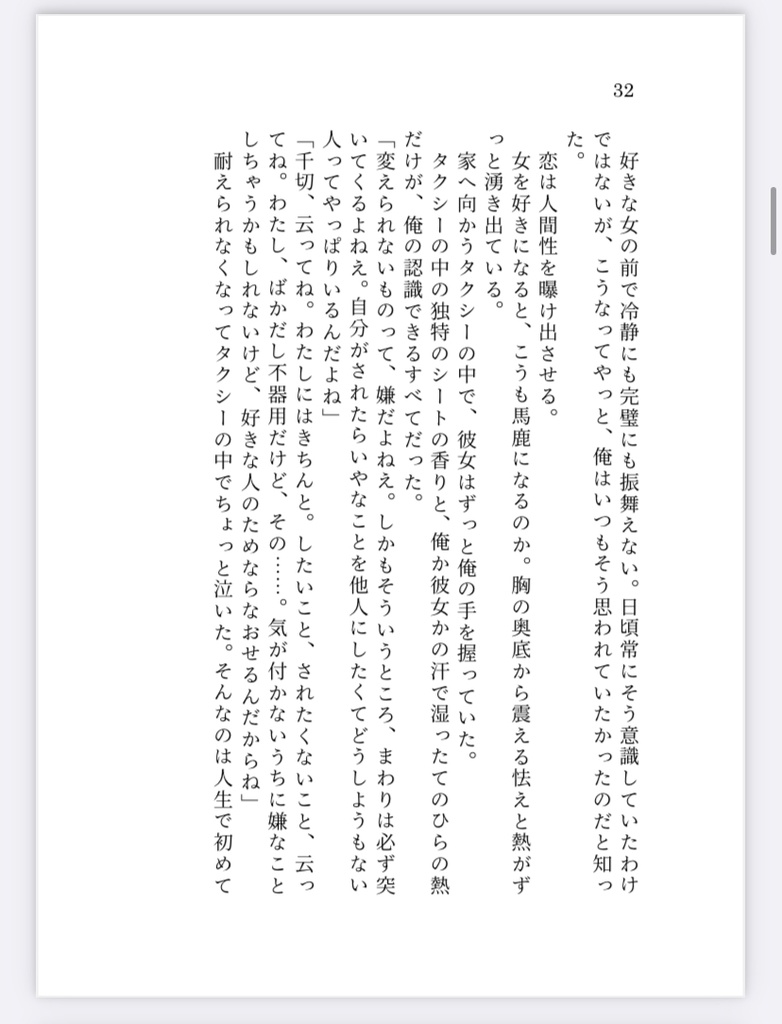 32
好きな女の前で冷静にも完璧にも振舞えない。日頃常にそう意識していたわけ
ではないが、こうなってやっと、俺はいつもそう思われていたかったのだと知っ
た。
恋は人間性を曝け出させる。
女を好きになると、こうも馬鹿になるのか。胸の奥底から震える怯えと熱がず
っと湧き出ている。
家へ向かうタクシーの中で、彼女はずっと俺の手を握っていた。
タクシーの中の独特のシートの香りと、俺か彼女かの汗で湿ったてのひらの熱
だけが、俺の認識できるすべてだった。
「変えられないものって、嫌だよねえ。しかもそういうところ、まわりは必ず突
いてくるよねえ。自分がされたらいやなことを他人にしたくてどうしようもない
人ってやっぱりいるんだよね」
「千切、云ってね。わたしにはきちんと。したいこと、されたくないこと、云っ
てね。わたし、ばかだし不器用だけど、その……。気が付かないうちに嫌なこと
しちゃうかもしれないけど、好きな人のためならなおせるんだからね」
耐えられなくなってタクシーの中でちょっと泣いた。そんなのは人生で初めて